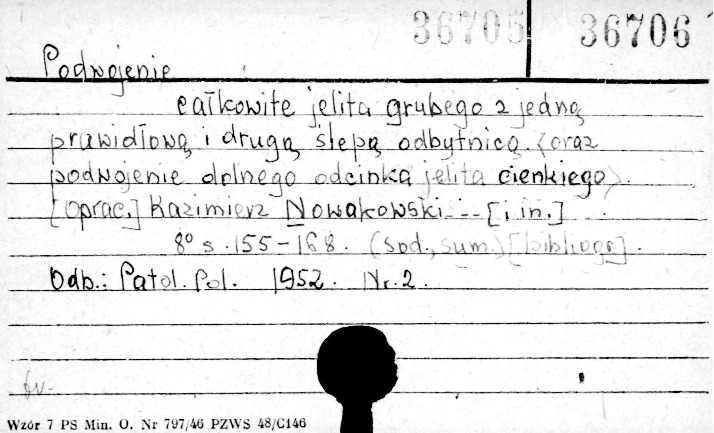 36705 36706
Podwojenie
całkowite jelita grubego z jedną
prawidłową i drugą ślepą odbytnicą (oraz
podwojenie dolnego odcinka jelita cienkiego).
[oprac.] Kazimierz Nowakowski... [i in.]
8° s. 155-168. (sod., sum.) [bibliogr].
Odb.: Patol. Pol. 1952. Nr. 2.
Wzór 7 PS Min. O. Nr 797/46 PZWS 48/C146